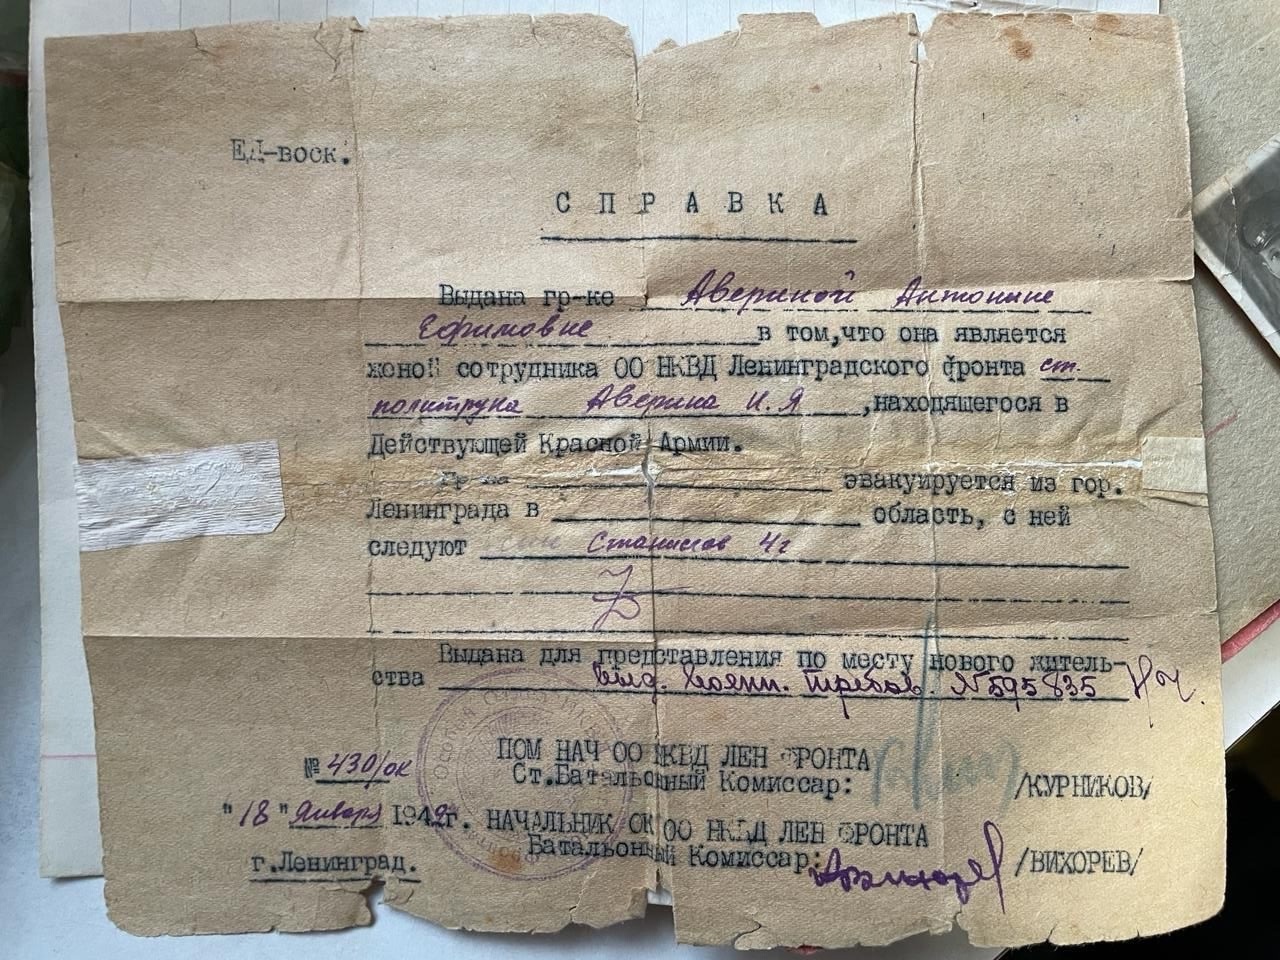 ЕД-воск.
СПРАВКА
Выдана гр-ке Авериной Антонине
Ефимовне в том,что она является
женой сотрудника ОО НКВД Ленинградского фронта ст.
политрука Аверина И.Я ,находящегося в
Действующей Красной Армии.
Гр-ка эвакуируется из гор.
Ленинграда в область, с ней
следуют сын Станислав 4г
Выдана для представления по месту нового житель-
ства
выд. требов. №595835
ПОМ НАЧ ОО НКВД ЛЕН ФРОНТА
№ 430/ок Ст.Батальонный Комиссар: /КУРНИКОВ/
"18" Января 1942г. НАЧАЛЬНИК ОК ОО НКВД ЛЕН ФРОНТА
Батальонный Комиссар: /ВИХОРЕВ/
г.Ленинград.